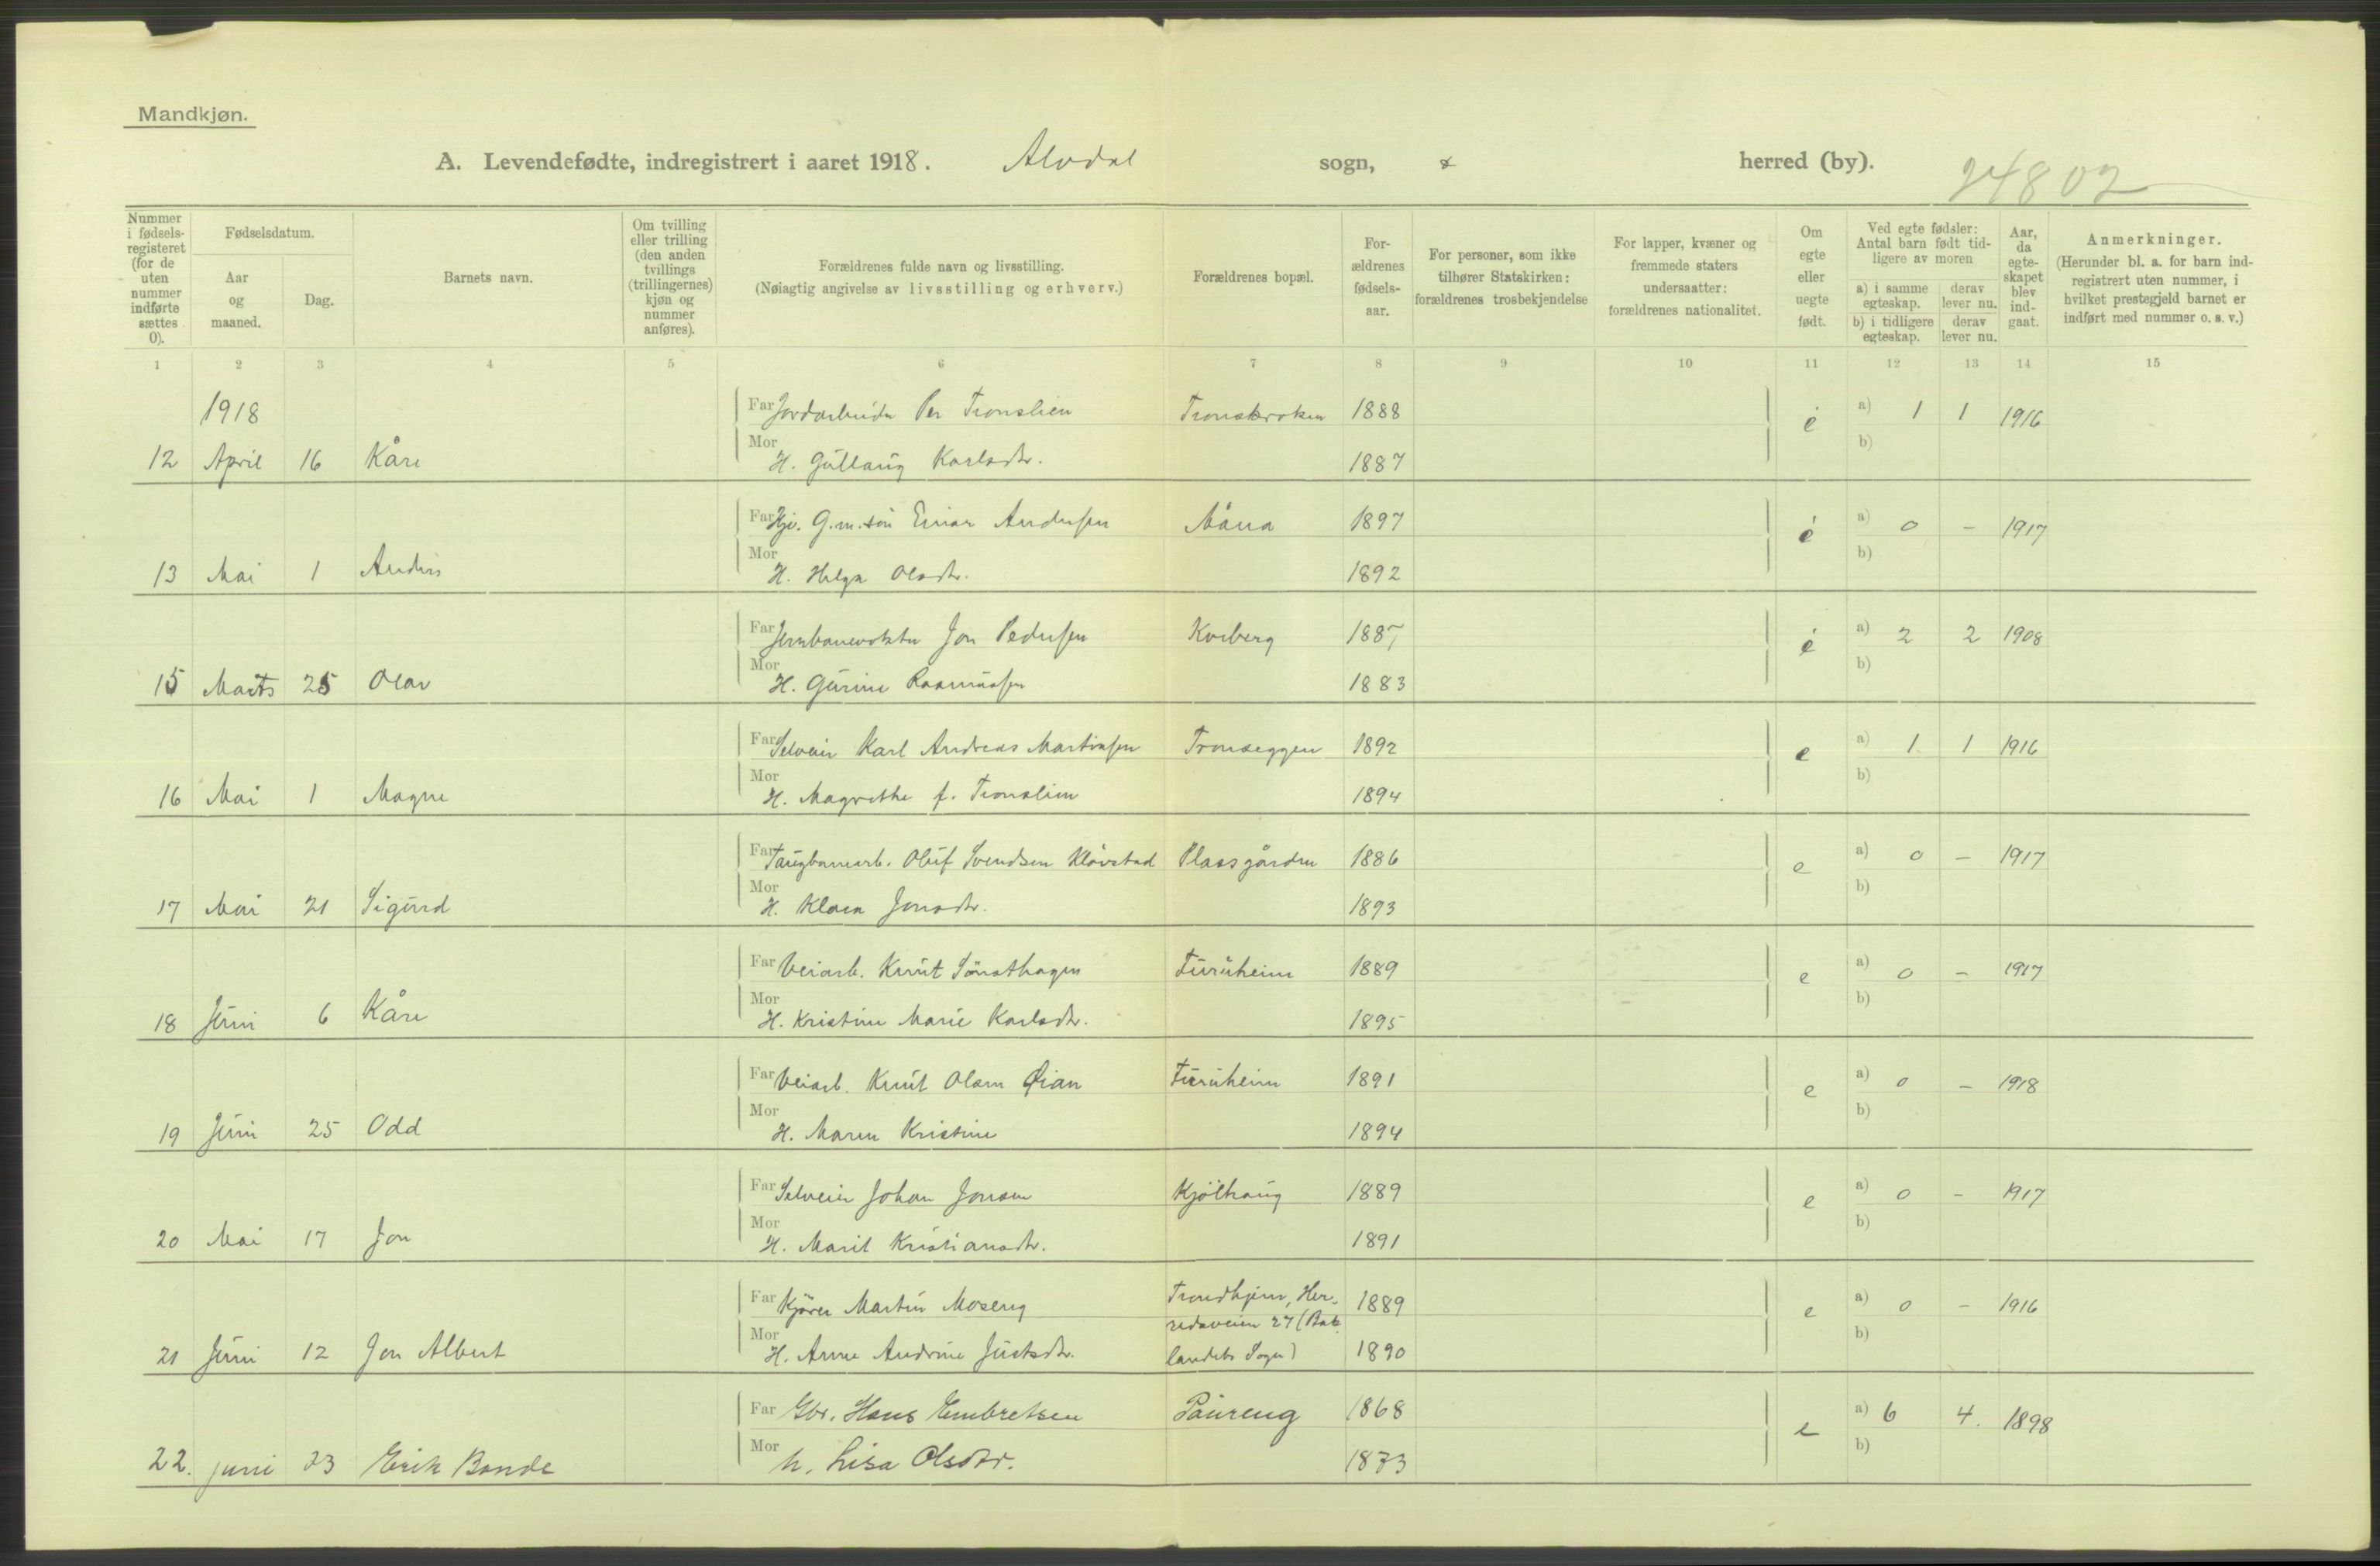 Mandkjøn.
A. Levendefødte, indregistrert i aaret 1918. Alvdal sogn, herred (by). 24802
Nummer i fødsels-registeret (for de uten nummer indførte sættes 0).
Fødselsdatum.
Aar og maaned.
Dag.
Barnets navn.
Om tvilling eller trilling (den anden tvillings (trillingernes) kjøn og nummer anføres).
Forældrenes fulde navn og livsstilling.
(Nøiagtig angivelse av livsstilling og erhverv.)
Forældrenes bopæl.
For-ældrenes fødsels-aar.
For personer, som ikke tilhører Statskirken: forældrenes trosbekjendelse
For lapper, kvæner og fremmede staters undersaatter: forældrenes nationalitet.
Om egte eller uegte født.
Ved egte fødsler: Antal barn født tid-ligere av moren
a) i samme egteskap. derav lever nu.
b) i tidligere egteskap. derav lever nu.
Aar, da egte-skapet blev ind-gaat.
Anmerkninger.
(Herunder bl. a. for barn ind-registrert uten nummer, i hvilket prestegjeld barnet er indført med nummer o. s. v.)
1 2 3 4 5 6 7 8 9 10 11 12 13 14 15
1918 Far Jordarbeider Per Tronslien Tronskroken 1888 é a) 1 1 1916
12 April 16 Kåre Mor H. Gullaug Karlsdtr. 1887 b)
Far Gjv. G.m.sön Einar Andersen Nåna 1897 é a) 0 - 1917
13 Mai 1 Anders Mor H. Helga Olsdtr. 1892 b)
Far Jernbanevokter Jon Pedersen Kviberg 1887 é a) 2 2 1908
15 Marts 25 Olav Mor H. Gurine Rasmussen 1883 b)
Far Selveier Karl Andreas Martinsen Tronseggen 1892 e a) 1 1 1916
16 Mai 1 Magne Mor H. Magrethe f. Tronslien 1894 b)
Far Taugbanearb. Oluf Svendsen Klövstad Plassgården 1886 e a) 0 - 1917
17 Mai 21 Sigurd Mor H. Klara Jonsdtr. 1893 b)
Far Veiarb. Knut Sönsthagen Furuheim 1889 e a) 0 - 1917
18 Juni 6 Kåre Mor H. Kristine Marie Karlsdtr. 1895 b)
Far Veiarb. Knut Olsen Öian Furuheim 1891 e a) 0 - 1918
19 Juni 25 Odd Mor H. Maren Kristine 1894 b)
Far Selveier Johan Jonsen Kjölhaug 1889 e a) 0 - 1917
20 Mai 17 Jon Mor H. Marit Kristiansdtr. 1891 b)
Far Kjörer Martin Moseng Trondhjem, Her- 1889 e a) 0 - 1916
redsveien 27 (Bak-
21 Juni 12 Jon Albert Mor H. Anne Andrine Justsdtr. landets Sogn) 1890 b)
Far Gbr. Hans Embretsen Paureng 1868 e a) 6 4. 1898
22. juni 23 Erik Bonde Mor h. Lisa Olsdtr. 1873 b)